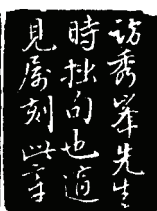 訪秀峯先生
時拙句也適
見属刻此字